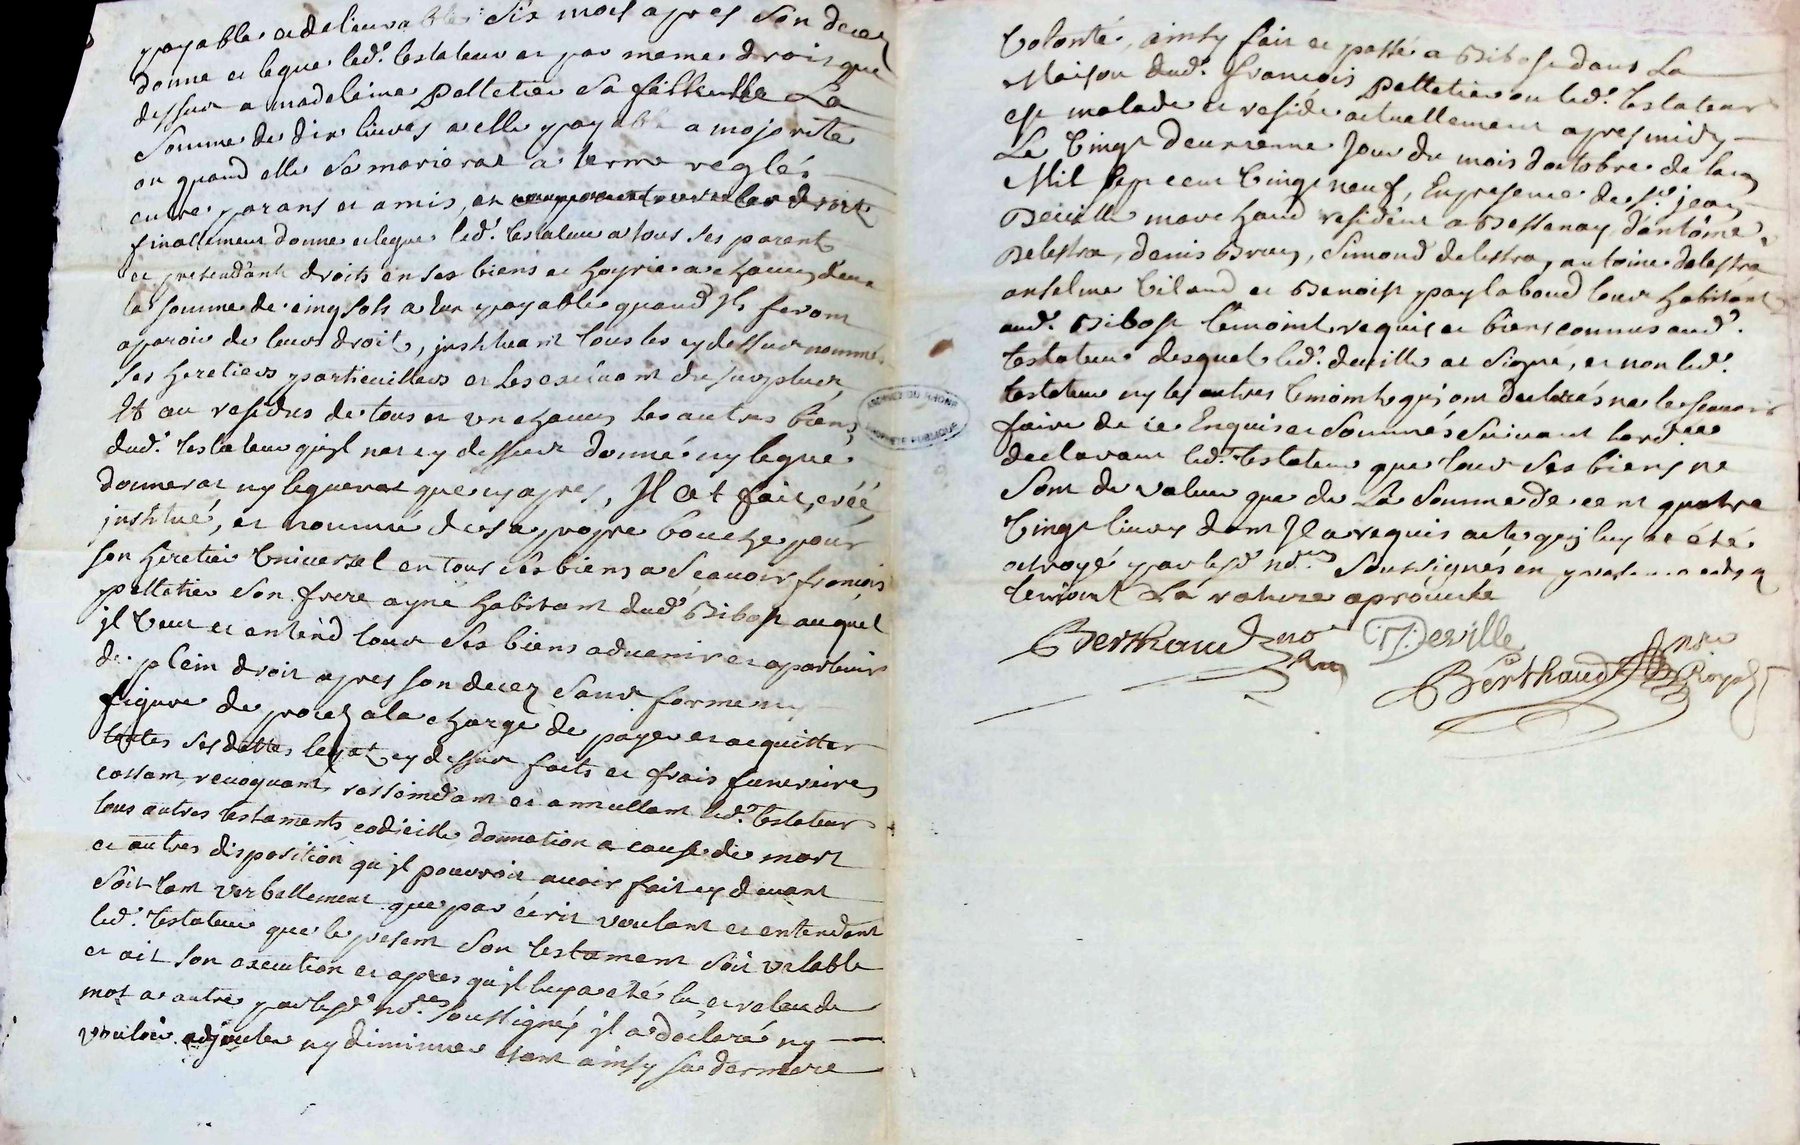 payable et delivrable six mois apres son decez
donne et legue led. testateur et par meme droit que
dessus a madeleine Pelletier sa fillieulle La
Somme de dix livres a elle payable a majorité
ou quand elle se marierat a terme reglés
entre parans et amis, et
finallement donne et legue led. testateur a tous ses parents
et pretendants droits en ses biens et hoyrie a chacun deux
la somme de cinq sols a eux payable quand Ils feront
aparoir de leurs droit, instituant tous les cy dessus nommés
ses heretiers particuillers et les excluant du surplus
Et au residus de tous et un chacun les autres biens
dud. testateur qu'jl nat cy dessus donné ny legué
donnerat ny leguerat que cy apres, Jl at fait, créé
jnstitué, et nommé de sa propre bouche pour
son heretier Universel en tous ses biens a Scavoir francois
pelletier son frere ayné habitant dud. Bibost auquel
jl veut et entend tous ses biens advenir et apartenir
de plein droit apres son decez sans forme ny
figure de procez a la charge de payer et acquitter
toutes ses dettes legat cy dessus faits et frais funeraires
cassant, revoquant, rescindant et annullant led. testateur
tous autres testaments, codicille, donnation a cause de mort
et autres disposition qu'jl pouvroit avoir fait cy devant
soit tant verballement que par écrit voulant et entendant
led. testateur que le present son testament soit valable
et ait son execution et apres qu'jl luy a eté lu et relu de
mot a autre par les nd.res soussignés jl a declaré ny
vouloir adjouter ny diminuer etant ainsy sa derniere
volonté, ainsy fait et passé a Bibost dans La
Maison dud. francois Pelletier ou led. testateur
est malade et reside actuellement apres midy
Le vingt deuxieme jour du mois d'octobre de lan
Mil sept cent vingt neuf, En presence de sr. jean
Deville marchand resident a Bessenay, d'antôme
Delestra, denis Brun, Simond delestra, antoine delestra
anselme Vilaud et Benoist paylaboud tous habitant
aud. Bibost temoint requis et bien connus aud.
testateur desquel led. deville at signé, et non led.
testateur ny les autres temoint qui ont declarés ne le scavoir
faire de ce Enquis et Sommés suivant lord.ce
declarant led. testateur que tous ses biens ne
sont de valeur que de La Somme de cent quatre
vingt livres dont Jl a requis acte qui luy at eté
octroyé par les nd.res soussignés en presence desd.
temoint La rature aprouvée
Berthaud no.re
J Deville
Berthaud
n.re Royal
ARCHIVES DU RHONE
PROPRIÉTÉ PUBLIQUE